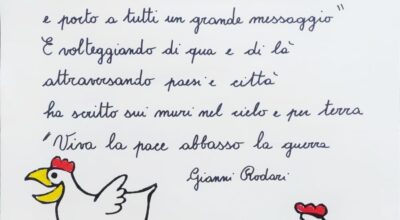 e porto a tutti un grande messaggio"
E volteggiando di qua e di là
attraversando paesi e città
ha scritto sui muri nel cielo e per terra
"Viva la pace abbasso la guerra
Gianni Rodari